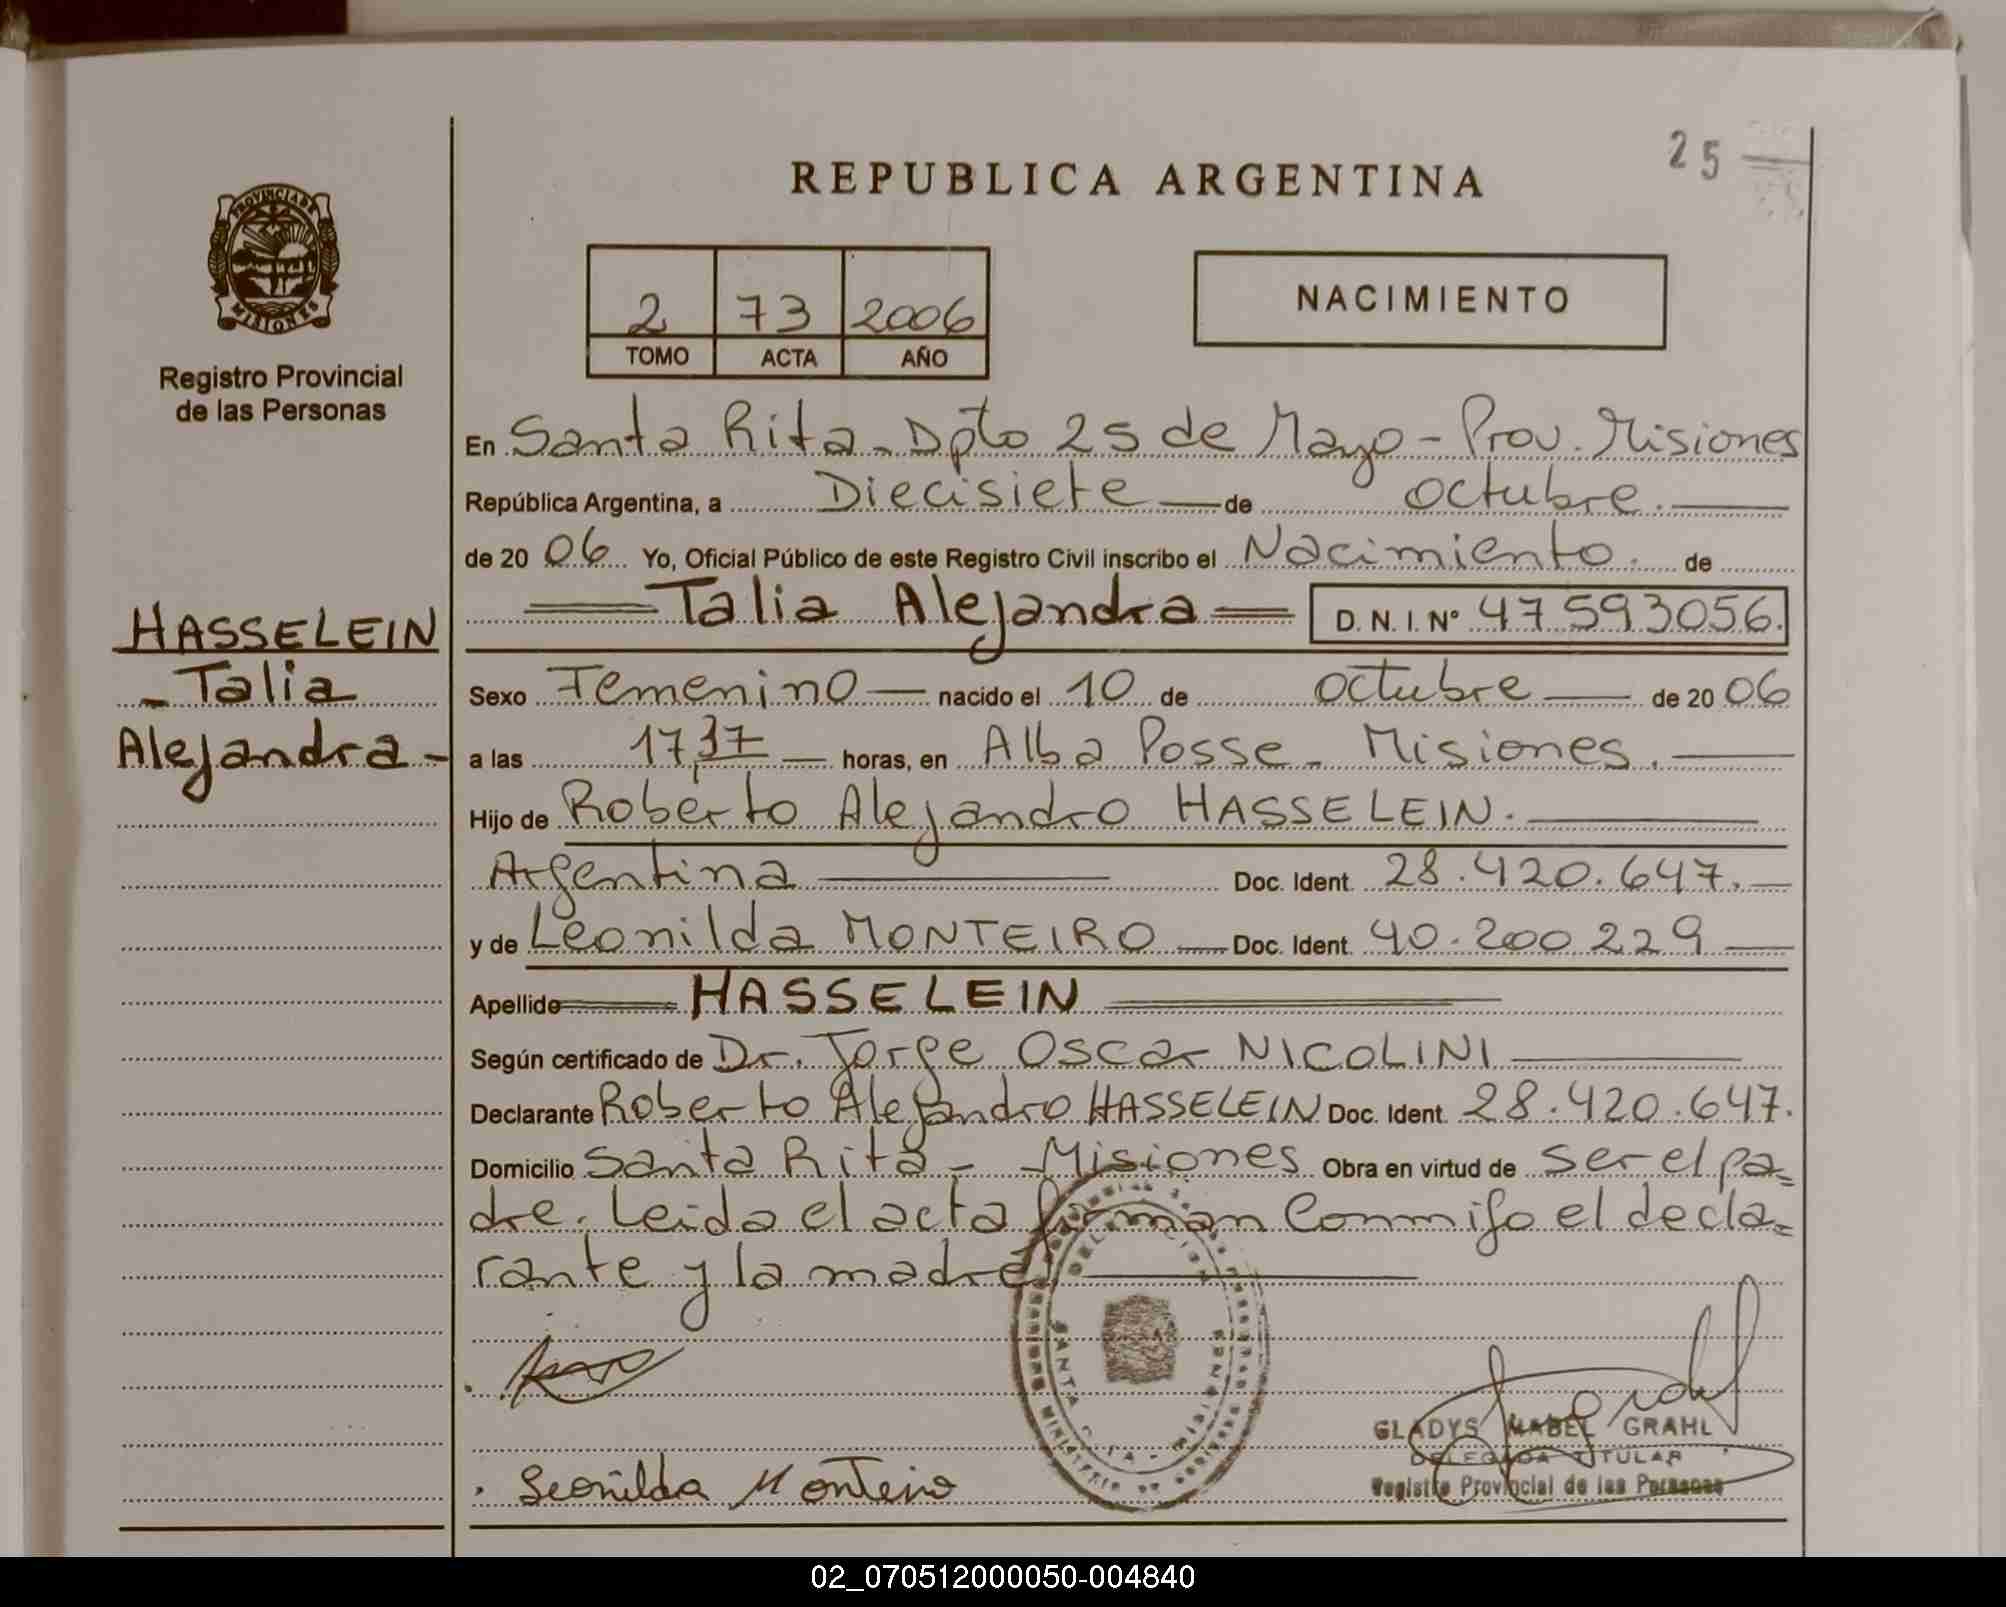 25
REPUBLICA ARGENTINA
PROVINCIA DE
MISIONES
Registro Provincial
de las Personas
2 73 2006
TOMO ACTA AÑO
NACIMIENTO
En Santa Rita - Dpto 25 de Mayo - Prov. Misiones
República Argentina, a Diecisiete — de octubre. —
de 20 06 Yo, Oficial Público de este Registro Civil inscribo el Nacimiento. de
Talia Alejandra D. N. I. N° 47593056.
HASSELEIN
- Talia
Alejandra -
Sexo Femenino — nacido el 10 de octubre — de 20 06
a las 17,37 — horas, en Alba Posse - Misiones. —
Hijo de Roberto Alejandro HASSELEIN. —
Argentina — Doc. Ident. 28.420.647. —
y de Leonilda MONTEIRO — Doc. Ident. 40.200.229 —
Apellido HASSELEIN
Según certificado de Dr. Jorge Oscar NICOLINI —
Declarante Roberto Alejandro HASSELEIN Doc. Ident. 28.420.647.
Domicilio Santa Rita - Misiones Obra en virtud de ser el pa=
dre. Leida el acta firman Conmigo el decla=
rante y la madre —
Leonilda Monteiro
GLADYS MABEL GRAHL
DELEGADA TITULAR
Registro Provincial de las Personas
02_070512000050-004840